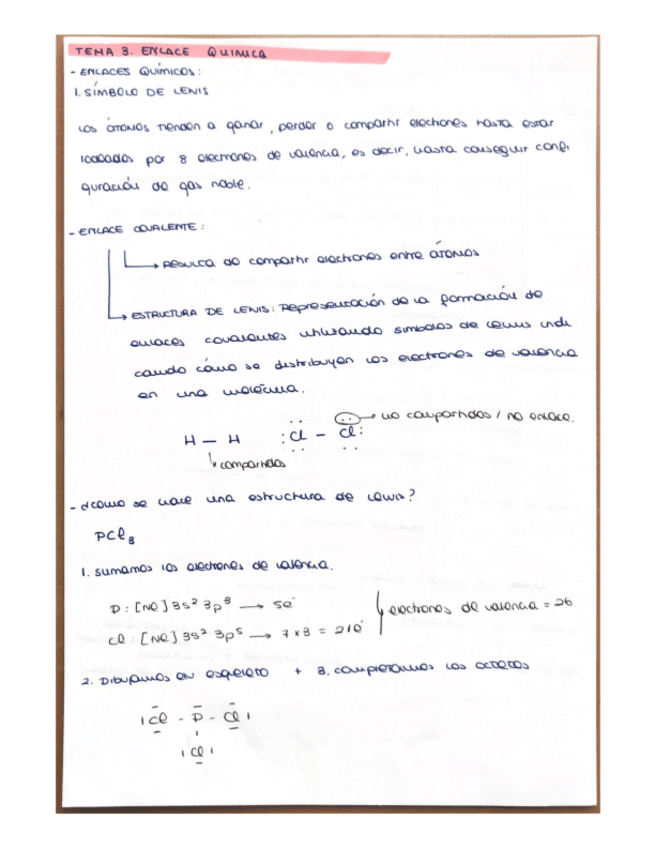 TEMA 3. ENLACE QUIMICA
- ENLACES QUÍMICOS:
1. SÍMBOLO DE LEWIS
Los átomos tienden a ganar, perder o compartir electrones hasta estar
rodeados por 8 electrones de valencia, es decir, hasta conseguir confi-
guración de gas noble.
- ENLACE COVALENTE:
→ RESULTA de compartir electrones entre átomos
→ ESTRUCTURA DE LEWIS: Representación de la formación de
enlaces covalentes utilizando símbolos de Lewis indi
cando cómo se distribuyen los electrones de valencia
en una molécula.
→ no compartidos / no enlace.
H — H :Cl - Cl:
↳ compartidos
- ¿Cómo se hace una estructura de Lewis?
PCl3
1. Sumamos los electrones de valencia.
P: [Ne] 3s² 3p³ → 5e⁻
Cl: [Ne] 3s² 3p⁵ → 7x3 = 21e⁻
electrones de valencia = 26
2. Dibujamos en esqueleto + 3. completamos los octetos
|Cl - P - Cl|
|Cl|